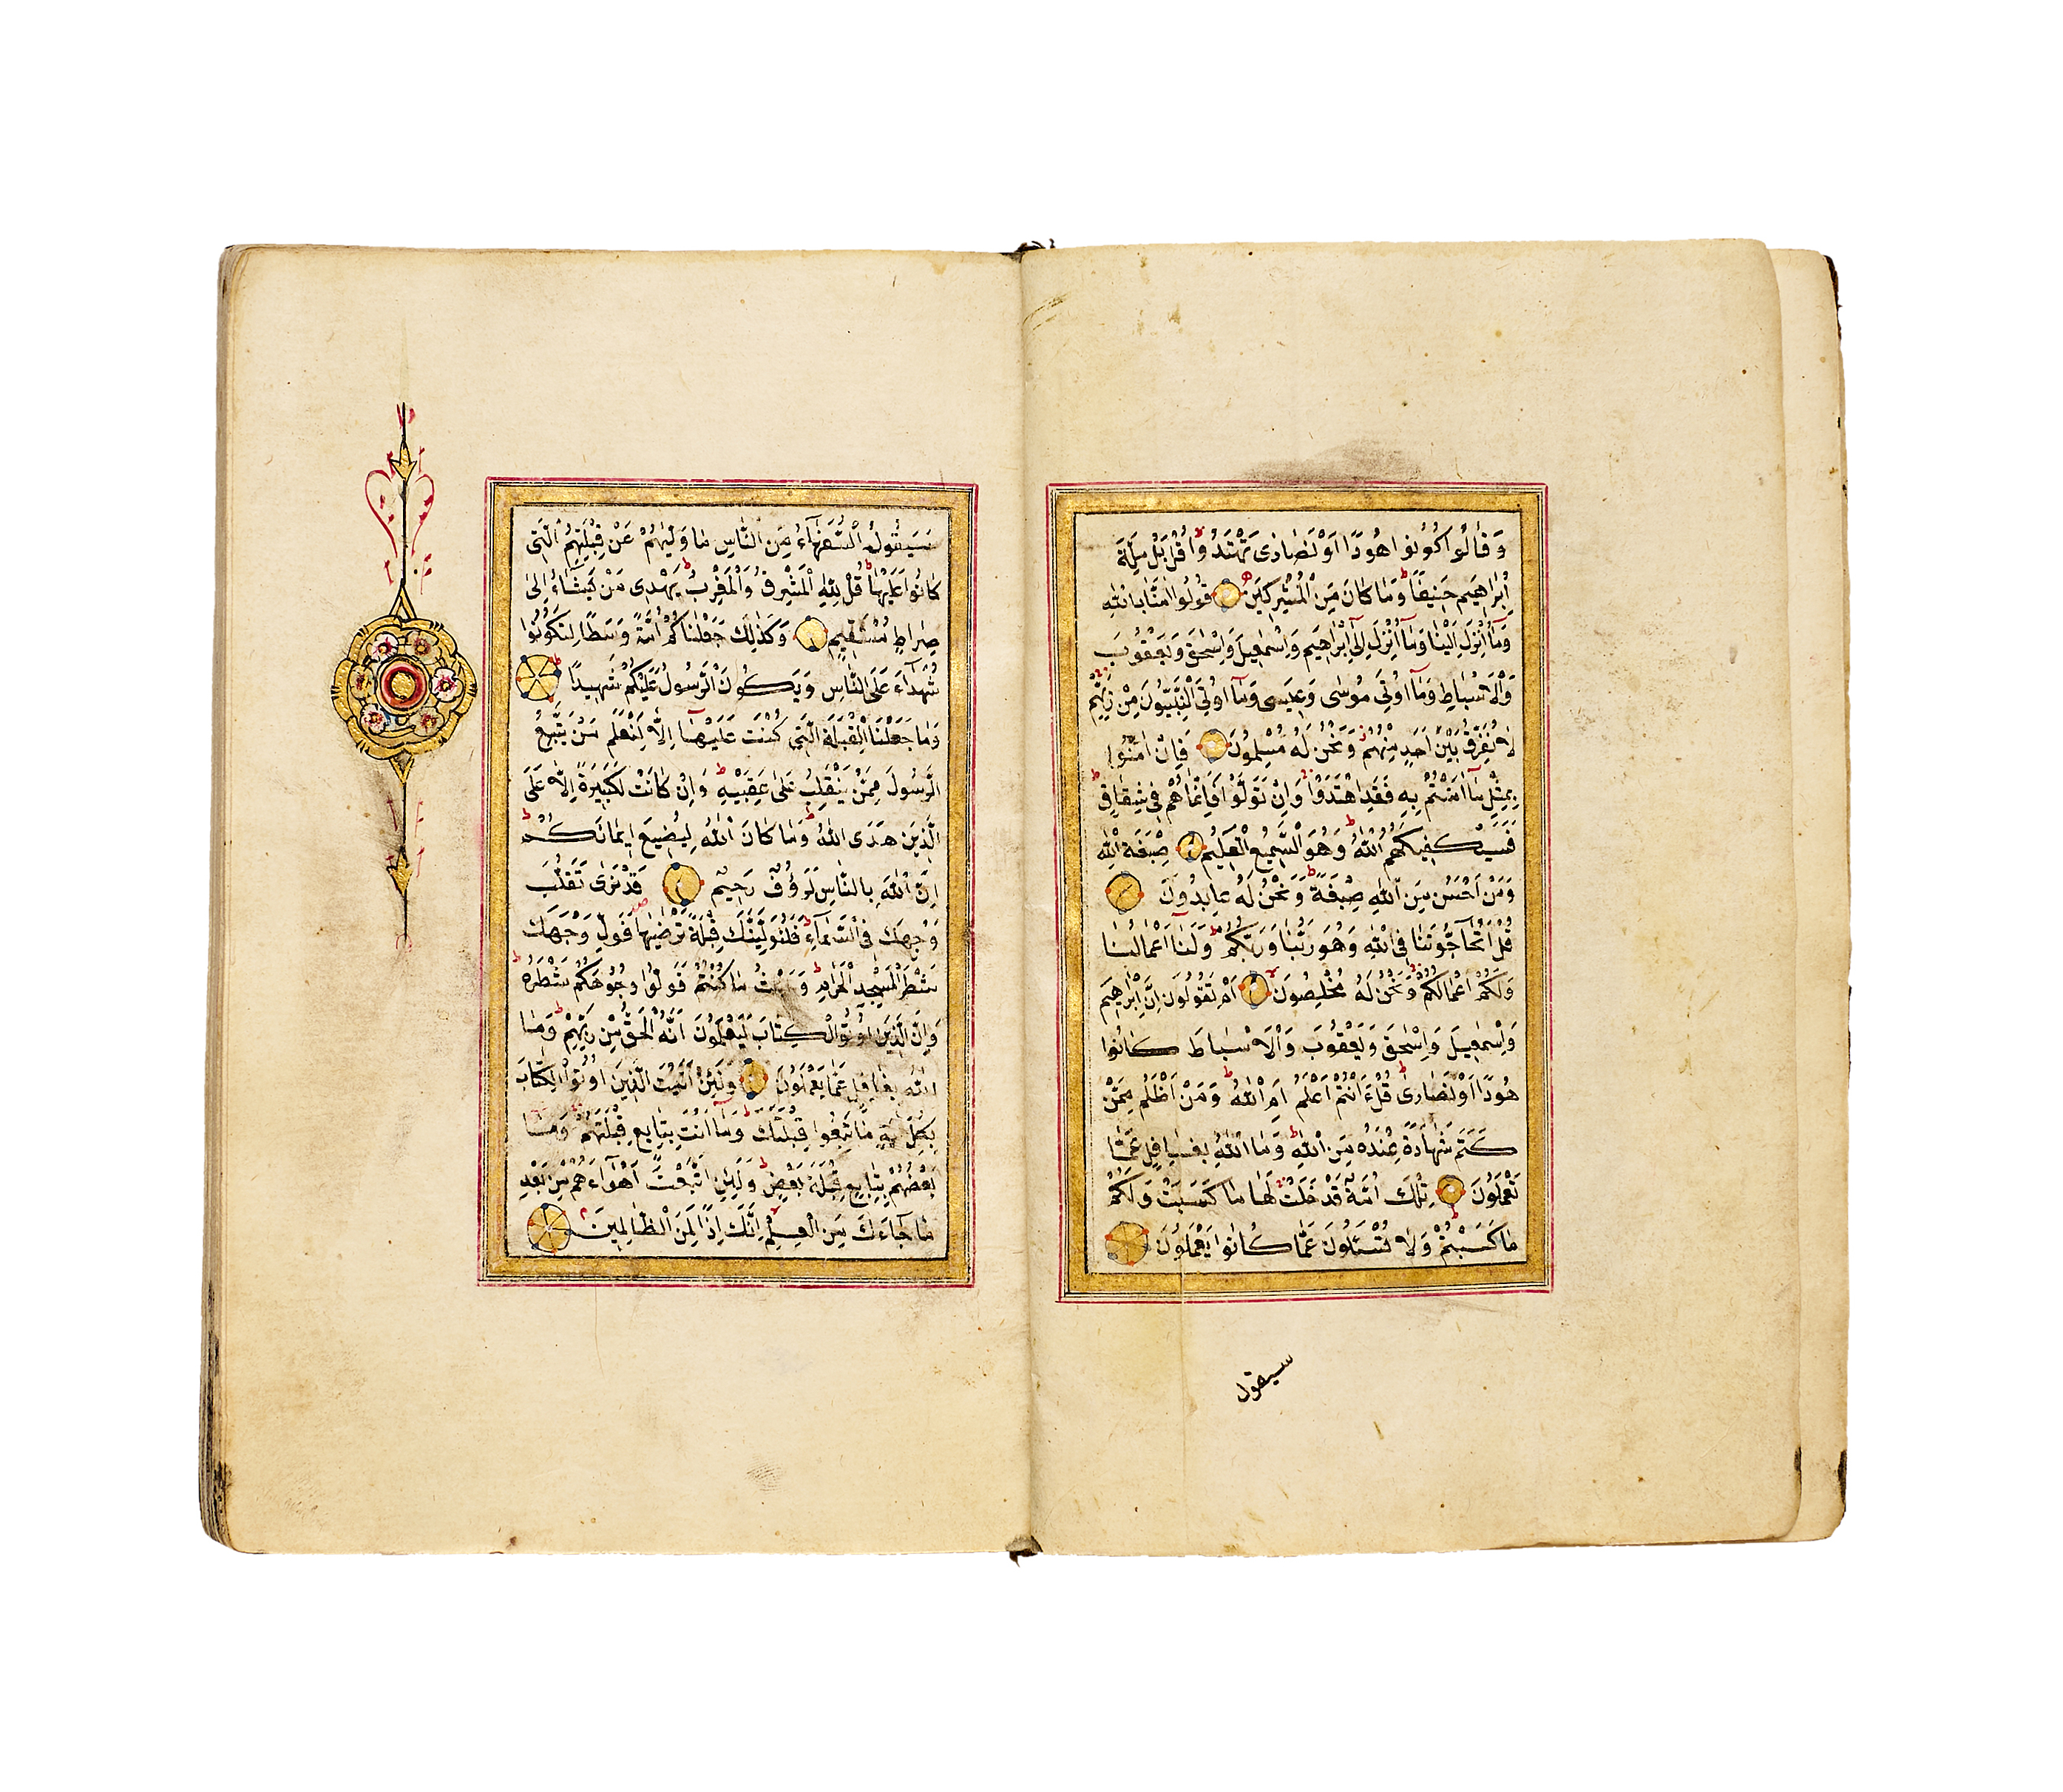 وَقَالُوا كُونُوا هُودًا اَوْ نَصَارٰى تَهْتَدُوا قُلْ بَلْ مِلَّةَ
اِبْرٰاهِيمَ حَنِيفًا وَمَا كَانَ مِنَ الْمُشْرِكِينَ قُولُوا اٰمَنَّا بِاللّٰهِ
وَمَآ اُنْزِلَ اِلَيْنَا وَمَآ اُنْزِلَ اِلٰٓى اِبْرٰاهِيمَ وَاِسْمٰعِيلَ وَاِسْحٰقَ وَيَعْقُوبَ
وَالْاَسْبَاطِ وَمَآ اُوتِيَ مُوسٰى وَعِيسٰى وَمَآ اُوتِيَ النَّبِيُّونَ مِنْ رَبِّهِمْ
لَا نُفَرِّقُ بَيْنَ اَحَدٍ مِنْهُمْ وَنَحْنُ لَهُ مُسْلِمُونَ فَاِنْ اٰمَنُوا
بِمِثْلِ مَآ اٰمَنْتُمْ بِهِ فَقَدِ اهْتَدَوْا وَاِنْ تَوَلَّوْا فَاِنَّمَا هُمْ فِي شِقَاقٍ
فَسَيَكْفِيكَهُمُ اللّٰهُ وَهُوَ السَّمِيعُ الْعَلِيمُ صِبْغَةَ اللّٰهِ
وَمَنْ اَحْسَنُ مِنَ اللّٰهِ صِبْغَةً وَنَحْنُ لَهُ عَابِدُونَ
قُلْ اَتُحَآجُّونَنَا فِي اللّٰهِ وَهُوَ رَبُّنَا وَرَبُّكُمْ وَلَنَآ اَعْمَالُنَا
وَلَكُمْ اَعْمَالُكُمْ وَنَحْنُ لَهُ مُخْلِصُونَ اَمْ تَقُولُونَ اِنَّ اِبْرٰاهِيمَ
وَاِسْمٰعِيلَ وَاِسْحٰقَ وَيَعْقُوبَ وَالْاَسْبَاطَ كَانُوا
هُودًا اَوْ نَصَارٰى قُلْ ءَاَنْتُمْ اَعْلَمُ اَمِ اللّٰهُ وَمَنْ اَظْلَمُ مِمَّنْ
كَتَمَ شَهَادَةً عِنْدَهُ مِنَ اللّٰهِ وَمَا اللّٰهُ بِغَافِلٍ عَمَّا
تَعْمَلُونَ تِلْكَ اُمَّةٌ قَدْ خَلَتْ لَهَا مَا كَسَبَتْ وَلَكُمْ
مَا كَسَبْتُمْ وَلَا تُسْئَلُونَ عَمَّا كَانُوا يَعْمَلُونَ
سيقول
سَيَقُولُ السُّفَهَآءُ مِنَ النَّاسِ مَا وَلّٰيهُمْ عَنْ قِبْلَتِهِمُ الَّتِي
كَانُوا عَلَيْهَا قُلْ لِلّٰهِ الْمَشْرِقُ وَالْمَغْرِبُ يَهْدِي مَنْ يَشَآءُ اِلٰى
صِرَاطٍ مُسْتَقِيمٍ وَكَذٰلِكَ جَعَلْنَاكُمْ اُمَّةً وَسَطًا لِتَكُونُوا
شُهَدَآءَ عَلَى النَّاسِ وَيَكُونَ الرَّسُولُ عَلَيْكُمْ شَهِيدًا
وَمَا جَعَلْنَا الْقِبْلَةَ الَّتِي كُنْتَ عَلَيْهَآ اِلَّا لِنَعْلَمَ مَنْ يَتَّبِعُ
الرَّسُولَ مِمَّنْ يَنْقَلِبُ عَلٰى عَقِبَيْهِ وَاِنْ كَانَتْ لَكَبِيرَةً اِلَّا عَلَى
الَّذِينَ هَدَى اللّٰهُ وَمَا كَانَ اللّٰهُ لِيُضِيعَ اِيمَانَكُمْ
اِنَّ اللّٰهَ بِالنَّاسِ لَرَؤُفٌ رَحِيمٌ قَدْ نَرٰى تَقَلُّبَ
وَجْهِكَ فِي السَّمَآءِ فَلَنُوَلِّيَنَّكَ قِبْلَةً تَرْضٰيهَا فَوَلِّ وَجْهَكَ
شَطْرَ الْمَسْجِدِ الْحَرَامِ وَحَيْثُ مَا كُنْتُمْ فَوَلُّوا وُجُوهَكُمْ شَطْرَهُ
وَاِنَّ الَّذِينَ اُوتُوا الْكِتَابَ لَيَعْلَمُونَ اَنَّهُ الْحَقُّ مِنْ رَبِّهِمْ وَمَا
اللّٰهُ بِغَافِلٍ عَمَّا يَعْمَلُونَ وَلَئِنْ اَتَيْتَ الَّذِينَ اُوتُوا الْكِتَابَ
بِكُلِّ اٰيَةٍ مَا تَبِعُوا قِبْلَتَكَ وَمَآ اَنْتَ بِتَابِعٍ قِبْلَتَهُمْ وَمَا
بَعْضُهُمْ بِتَابِعٍ قِبْلَةَ بَعْضٍ وَلَئِنِ اتَّبَعْتَ اَهْوَآءَهُمْ مِنْ بَعْدِ
مَا جَآءَكَ مِنَ الْعِلْمِ اِنَّكَ اِذًا لَمِنَ الظَّالِمِينَ